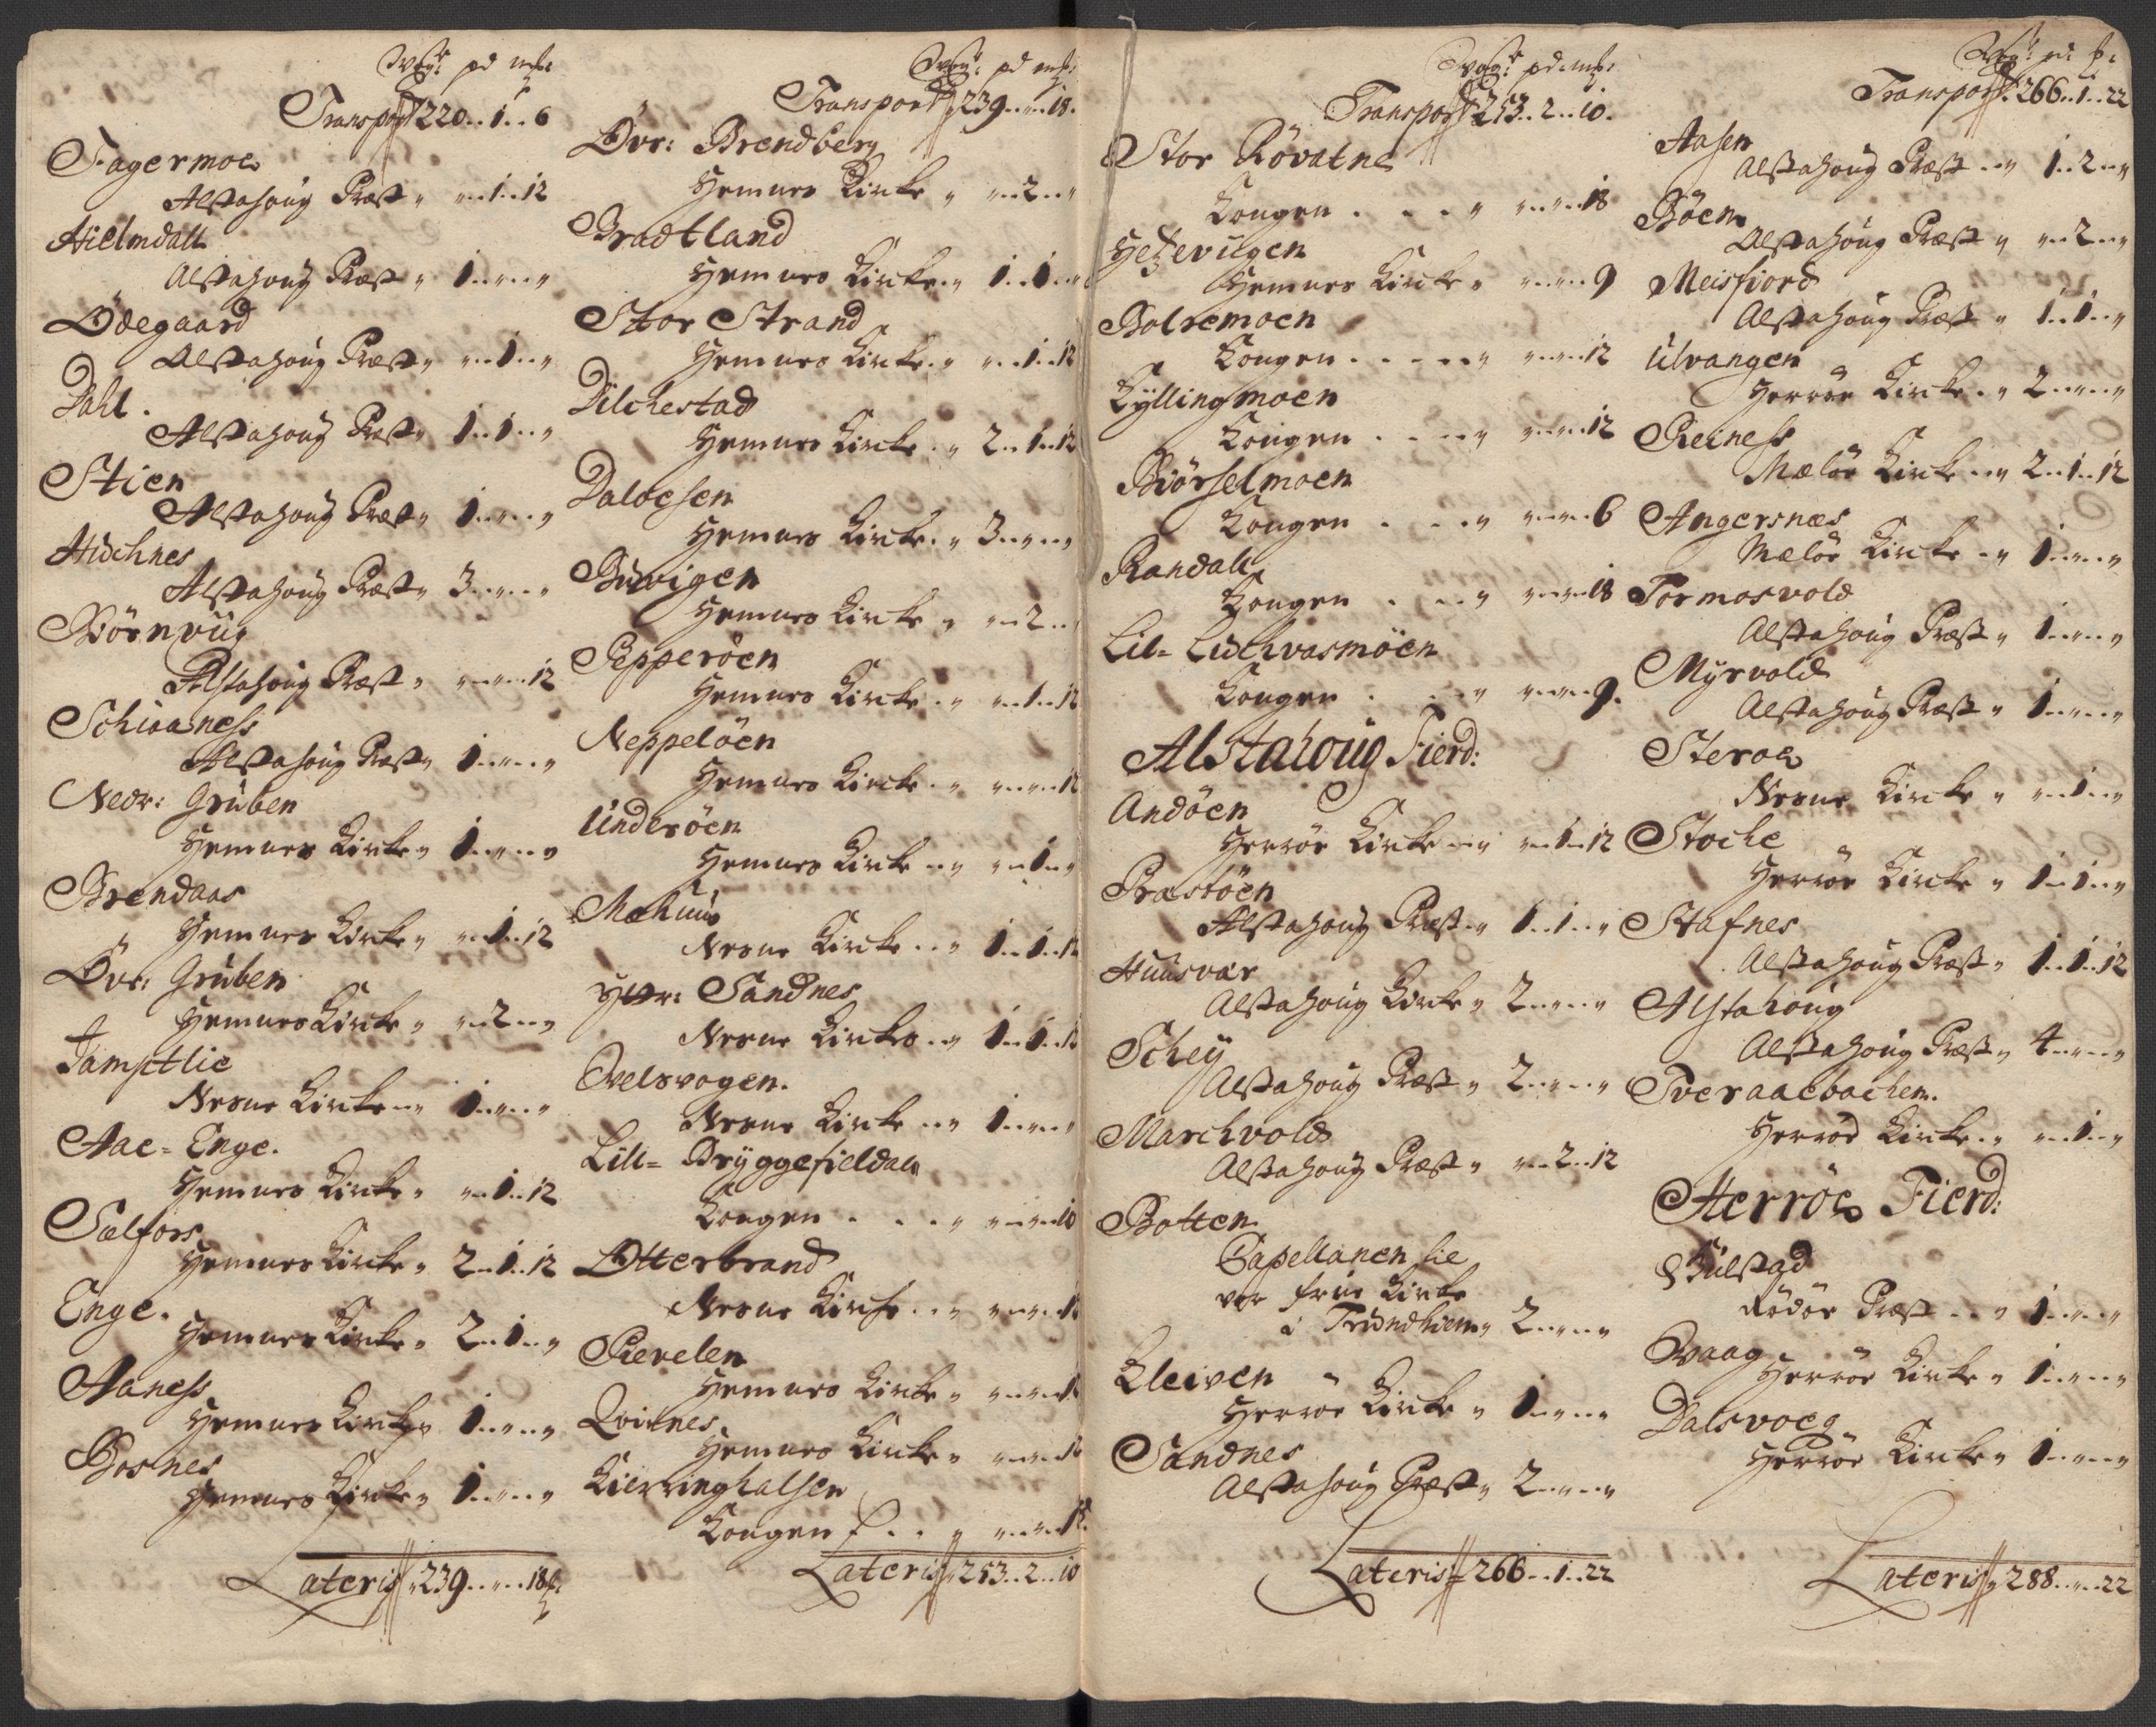 Wog: pd mk:
Transport 220..1..6
Fagermoe
Alstahoug Præst „ „..1..12
Hielmdall
Alstahoug Præst „ 1..„..„
Ödegaard
Alstahoug Præst „ „..1..„
Dahl.
Alstahoug Præst „ 1..1..„
Stien
Alstahoug Præst „ 1..„..„
Alstahoug Præst „ 3..„..„
Biörnviig
Alstahoug Præst „ „..„..12
Schiaaness
Alstahoug Præst „ 1..„..„
Nedr: Gruben
Hemnes Kircke „ 1..„..„
Brendaas
Hemnes Kircke „ „..1..12
Övr: Gruben
Hemnes Kircke „ „..2..„
Jamptlie
Nesne Kircke „ 1..„..„
Aae-Enge.
Hemnes Kircke „ „..1..12
Sælfors
Hemnes Kircke „ 2..1..12
Enge.
Hemnes Kircke „ 2..1..„
Aaness
Hemnes Kircke „ 1..„..„
Bosnes
Hemnes Kircke „ 1..„..„
Lateris „ 239..„..18
Wog: pd mk:
Transport 239..„..18.
Övr: Brendberg
Hemnes Kircke „ „..2..„
Bradtland
Hemnes Kircke „ 1..1..„
Stor Strand
Hemnes Kircke „ „..1..12
Dilchestad
Hemnes Kircke „ 2..1..12
Daloesen
Hemnes Kircke „ 3..„..„
Buvigen
Hemnes Kircke „ „..2..„
Pepperöen
Hemnes Kircke „ „..1..12
Neppelöen
Hemnes Kircke „ „..„..12
Underöen
Hemnes Kircke „ „..1..„
Mæhuus
Nesne Kircke „ 1..1..12
Yttr: Sandnes
Nesne Kircke „ 1..1..12
Qvelsvogen.
Nesne Kircke „ 1..„..„
Lill-Bryggefieldal
Kongen „ „..„..10
Otterbrand
Nesne Kircke „ „..„..12
Revelen
Hemnes Kircke „
Qvitnes
Hemnes Kircke „
Kierringhalsen
Kongen „
Lateris „ 253..2..10
Wog: pd: mk:
Transport 253..2..10.
Stor Rövatne
Kongen „ „..„..18
Hemnes Kircke „ „..„..9
Bolremoen
Kongen „ „..„..12
Kyllingmoen
Kongen „ „..„..12
Biörselmoen
Kongen „ „..„..6
Randal
Kongen „ „..„..18
Kongen „ „..„..9.
Alstahoug Fierd:
Andöen
Herröe Kircke „ „..1..12
Præstöen
Alstahoug Præst „ 1..1..„
Huusvær
Alstahoug Kircke „ 2..„..„
Schey
Alstahoug Præst „ 2..„..„
Marchvold
Alstahoug Præst „ „..2..12
Botten
Capellanen til
vor frue Kircke
i Trundhiem „ 2..„..„
Kleiven
Herröe Kircke „ 1..„..„
Sandnes
Alstahoug Præst „ 2..„..„
Lateris 266..1..22
Transport 266..1..22
Aasen
Alstahoug Præst „ 1..2..„
Böen
Alstahoug Præst „ „..2..„
Meisfiord
Alstahoug Præst „ 1..1..„
Ulvangen
Herröe Kircke „ 2..„..„
Reiness
Mælöe Kircke „ 2..1..12
Angersnæs
Mælöe Kircke „ 1..„..„
Tormosvold
Alstahoug Præst „ 1..„..„
Myrvold
Alstahoug Præst „ 1..„..„
Steroe
Nesne Kircke „ „..1..„
Stoche
Herröe Kircke „ 1..1..„
Stafnes
Alstahoug Præst „ 1..1..12
Alstahoug
Alstahoug Præst „ 4..„..„
Tveraaebachen.
Herröe Kircke „ „..1..„
Herröe Fierd:
Rödöe Præst „ 1..„..„
Svaag
Herröe Kircke „ 1..„..„
Dalsvoeg
Herröe Kircke „ 1..„..„
Lateris „ 288..„..22